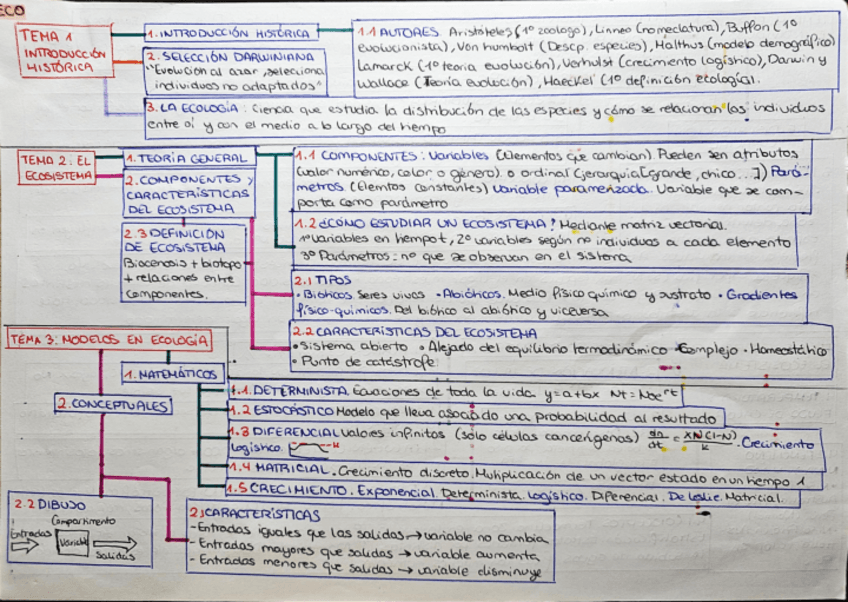 ECO
TEMA 1
INTRODUCCIÓN
HISTÓRICA
1. INTRODUCCIÓN HISTÓRICA
1.1 AUTORES. Aristóteles (1º zoologo), Linneo (nomeclatura), Buffon (1º
evolucionista), Von humbolt (Descp. especies), Malthus (modelo demográfico)
Lamarck (1º teoria evolución), Verhulst (crecimiento logístico), Darwin y
Wallace (Teoría evolución), Haeckel (1º definición ecología).
2. SELECCIÓN DARWINIANA
"Evolución al azar, selecciona
individuos no adaptados"
3. LA ECOLOGÍA: Ciencia que estudia la distribución de las especies y cómo se relacionan los individuos
entre si y con el medio a lo largo del tiempo
TEMA 2. EL
ECOSISTEMA
1. TEORÍA GENERAL
2. COMPONENTES Y
CARACTERÍSTICAS
DEL ECOSISTEMA
2.3 DEFINICIÓN
DE ECOSISTEMA
Biocenosis + biotopo
+ relaciones entre
componentes.
1.1 COMPONENTES: Variables (Elementos que cambian). Pueden ser atributos
(valor numérico, color o género) o ordinal (jerarquia [grande, chico...]) Pará-
metros (Elemtos constantes) Variable paramerizada. Variable que se com-
porta como parámetro
1.2 ¿CÓMO ESTUDIAR UN ECOSISTEMA? Mediante matriz vectorial.
1º Variables en tiempo t, 2º variables según nº individuos a cada elemento
3º Parámetros: nº que se observan en el sistema
2.1 TIPOS
• Bióticos Seres vivos • Abióticos. Medio físico químico y sustrato • Gradientes
físico-químicos. Del biótico al abiótico y viceversa
2.2 CARACTERÍSTICAS DEL ECOSISTEMA
• Sistema abierto • Alejado del equilibrio termodinámico • Complejo • Homeostático
• Punto de catástrofe
TEMA 3. MODELOS EN ECOLOGÍA
1. MATEMÁTICOS
2. CONCEPTUALES
1.1. DETERMINISTA. Ecuaciones de toda la vida y=a+bx Nt=N0e^rt
1.2 ESTOCÁSTICO Modelo que lleva asociado una probabilidad al resultado
1.3 DIFERENCIAL Valores infinitos (solo células cancerígenas) dn/dt = XN(1-N)/K. Crecimiento
logístico. K
1.4 MATRICIAL. Crecimiento discreto. Multiplicación de un vector estado en un tiempo 1
1.5 CRECIMIENTO. Exponencial. Determinista. Logístico. Diferencial. De Leslie. Matricial.
2.2 DIBUJO
Compartimento
Entradas
Variable
Salidas
2.1 CARACTERÍSTICAS
- Entradas iguales que las salidas → variable no cambia
- Entradas mayores que salidas → variable aumenta
- Entradas menores que salidas → variable disminuye